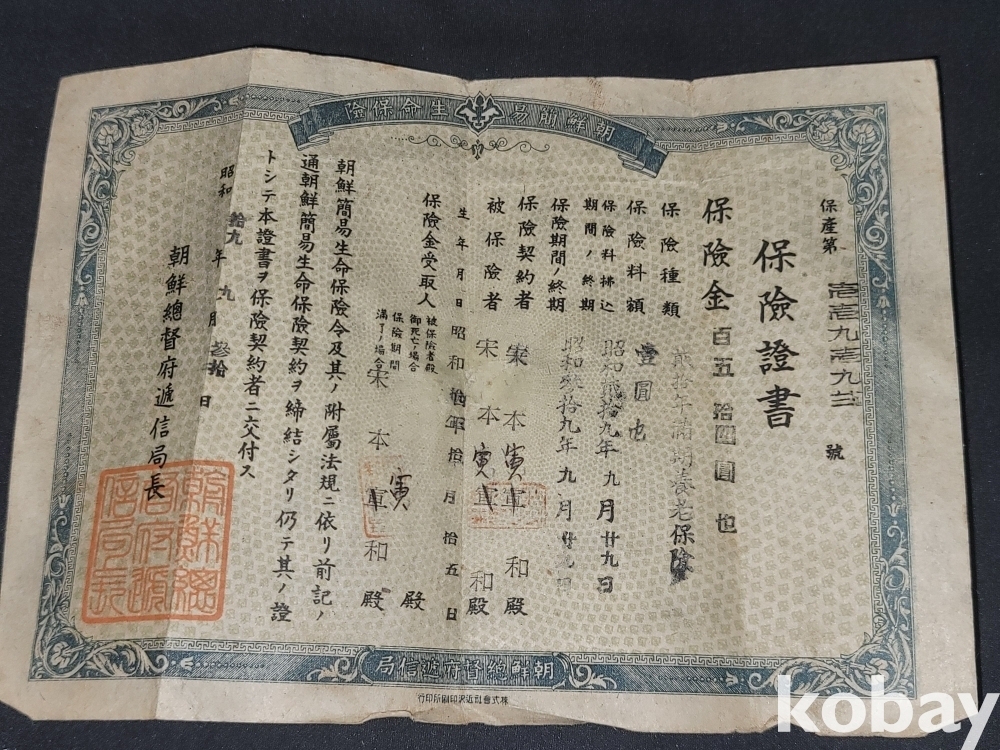 朝鮮簡易生命保險
保產第 壱壱九壱九弐 號
保險證書
保險金百五拾四圓也
保險種類 貳拾年滿期養老保險
保險料額 壹圓也
保險料拂込期間ノ終期 昭和参拾九年九月廿九日
保險期間ノ終期 昭和参拾九年九月廿九日
保險契約者 宋本寅和殿
被保險者 宋本寅和殿
生年月日 昭和拾四年拾月拾五日
保險金受取人
被保險者死亡ノ場合 殿
保險期間滿了ノ場合 宋本寅和殿
朝鮮簡易生命保險令及其ノ附屬法規ニ依リ前記ノ
通朝鮮簡易生命保險契約ヲ締結シタリ仍テ其ノ證
トシテ本證書ヲ保險契約者ニ交付ス
昭和拾九年九月參拾日
朝鮮總督府遞信局長
朝鮮總督府遞信局長
朝鮮總督府遞信局
kobay